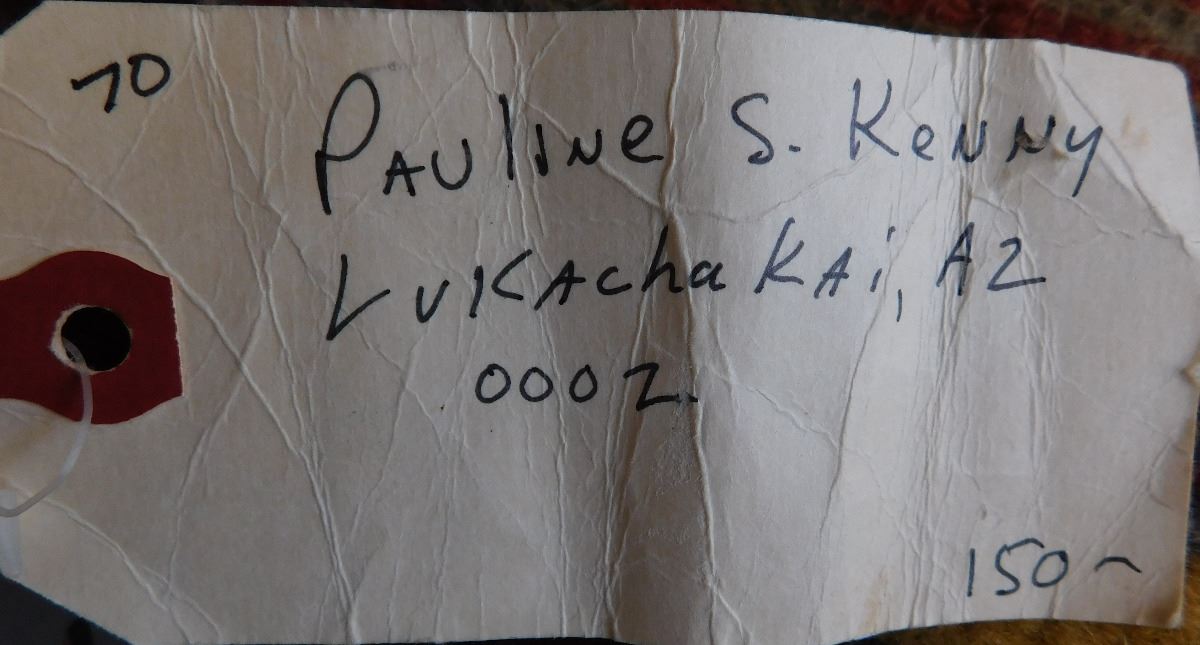 70
Pauline S. Kenny
Lukachakai, AZ
0002
150-